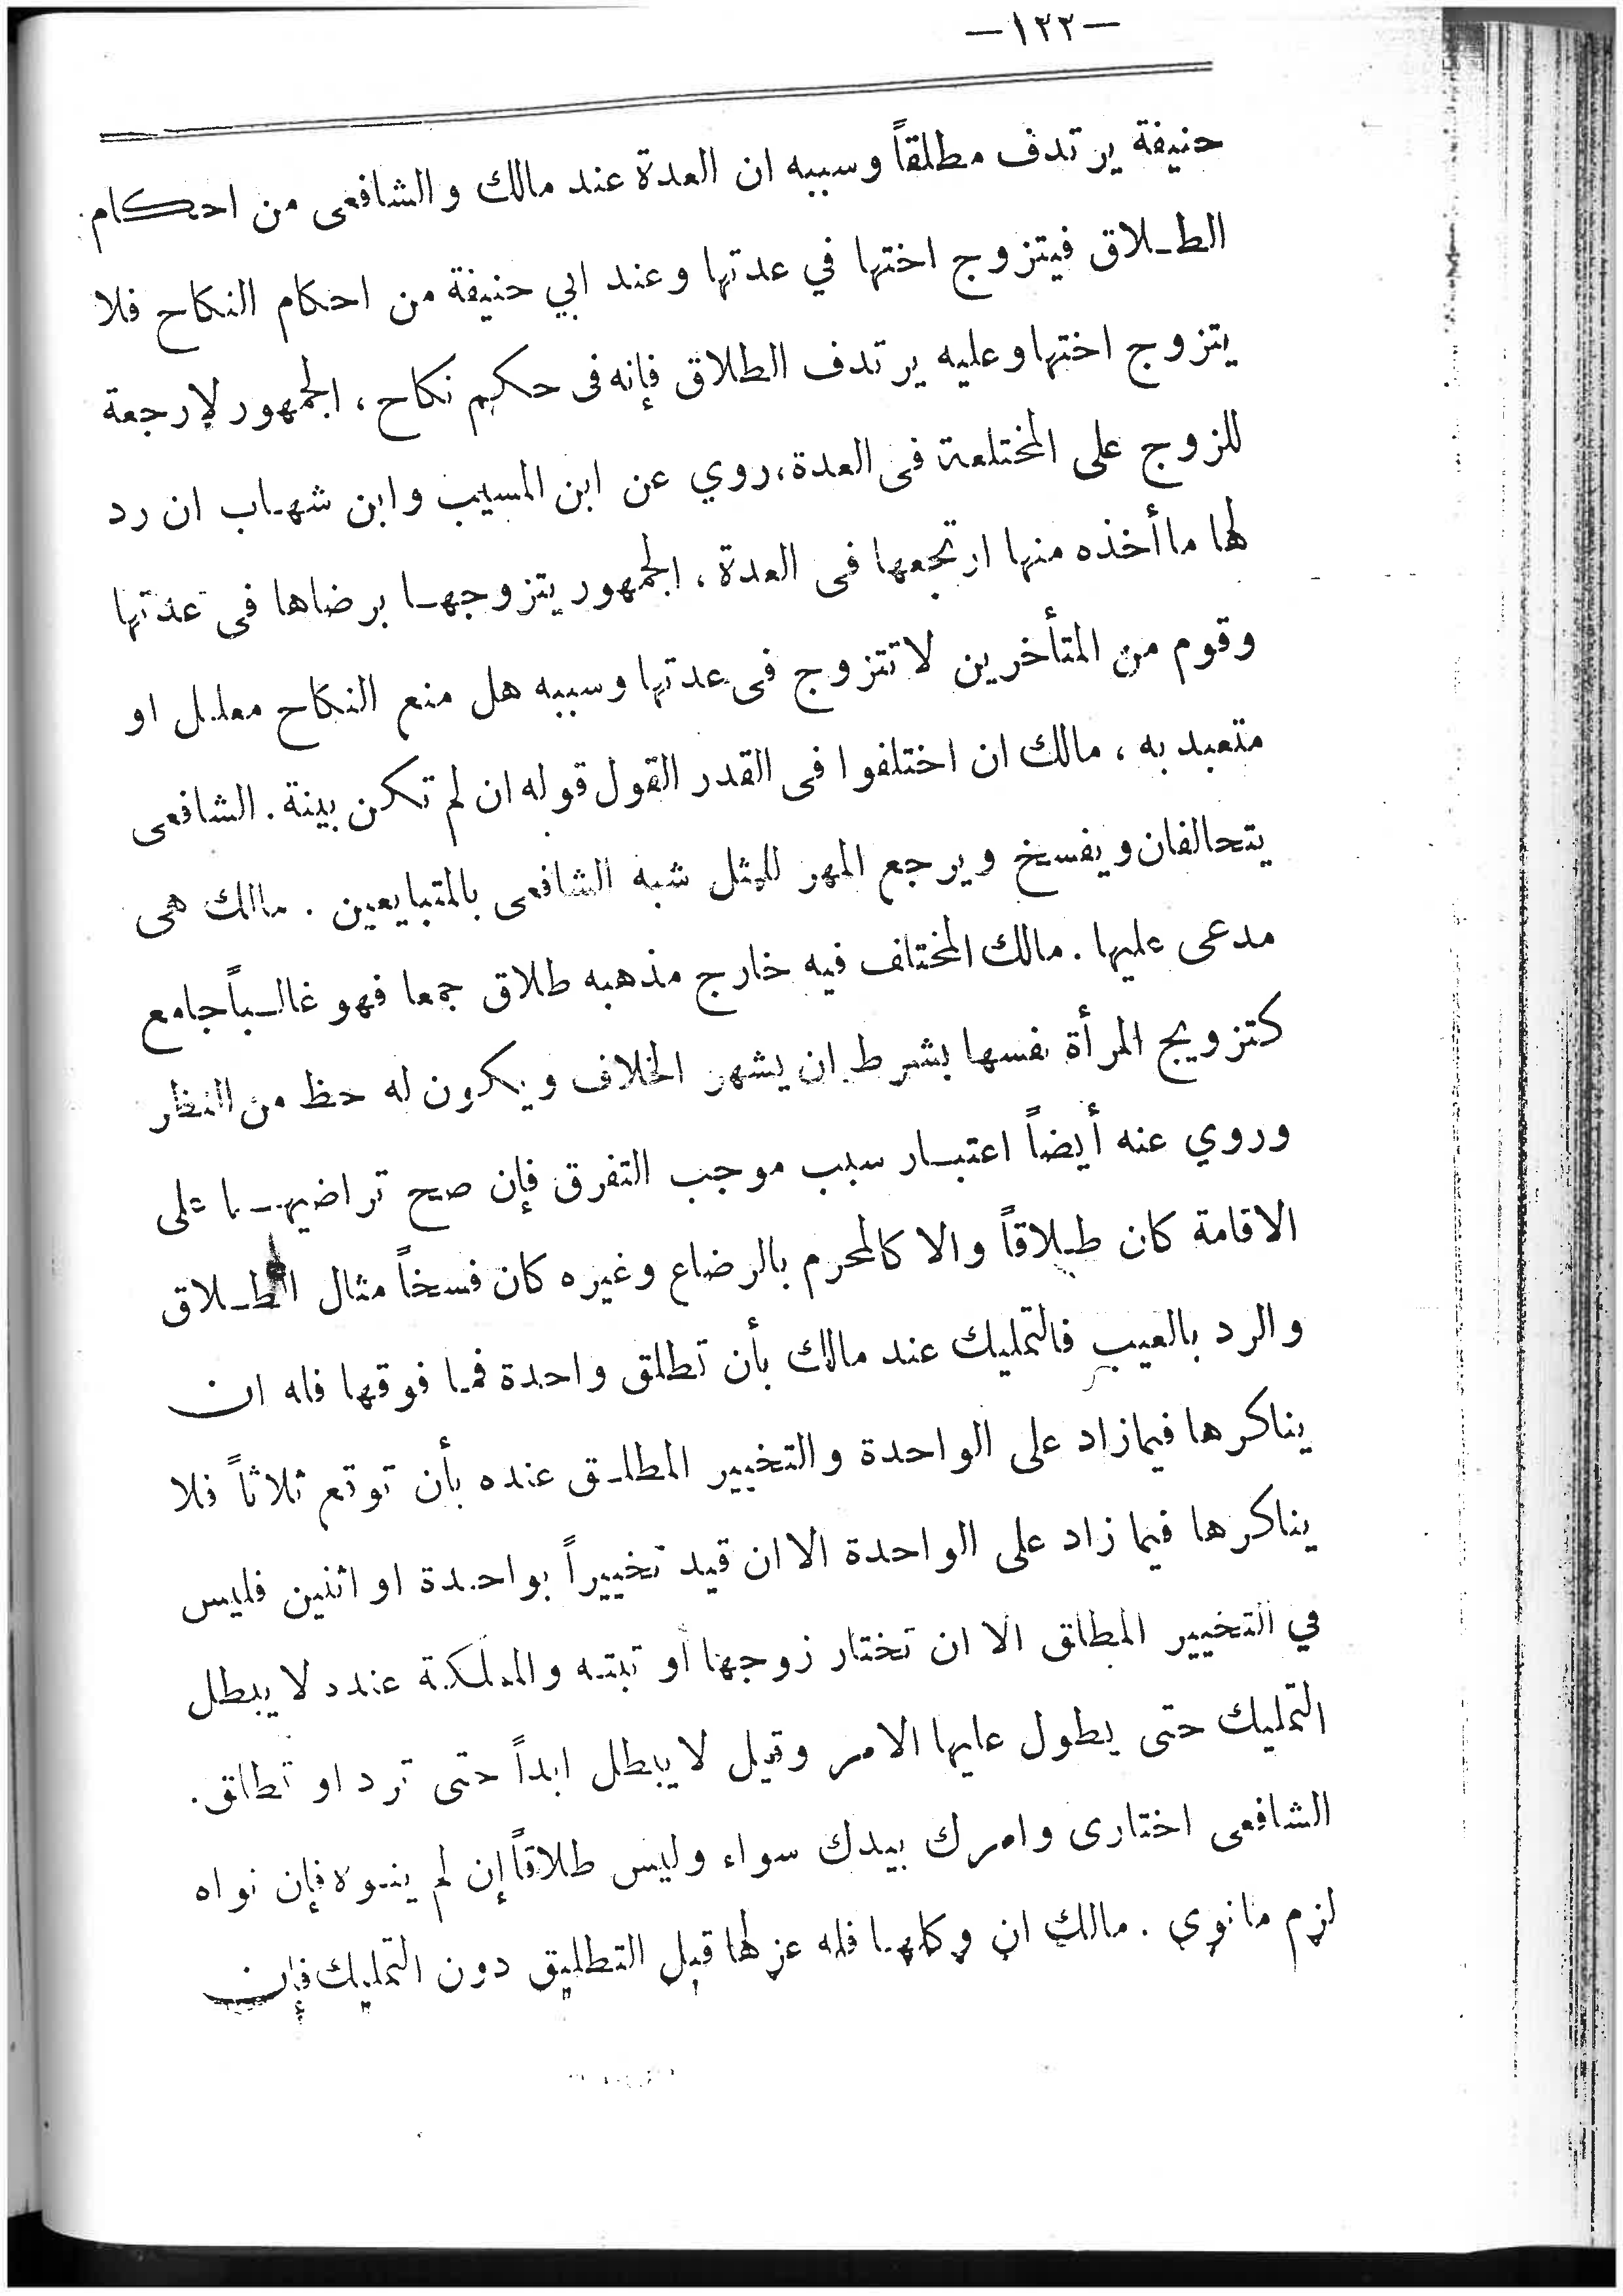 —١٢٢—
حنيفة يرتدف مطلقاً وسببه ان العدة عند مالك والشافعى من احكام
الطلاق فيتزوج اختها في عدتها وعند ابي حنيفة من احكام النكاح فلا
يتزوج اختها وعليه يرتدف الطلاق فإنه فى حكم نكاح ، الجمهور لارجعة
للزوج على المختلعة فى العدة ، روي عن ابن المسيب وابن شهاب ان رد
لها ما أخذه منها ارتجعها فى العدة ، الجمهور يتزوجها برضاها فى عدتها
وقوم من المتأخرين لا تتزوج فى عدتها وسببه هل منع النكاح معلل او
متعبد به ، مالك ان اختلفوا فى القدر القول قوله ان لم تكن بينة . الشافعى
يتحالفان ويفسخ ويرجع المهر للمثل شبه الشافعى بالمتبايعين . مالك هى
مدعى عليها . مالك المختلف فيه خارج مذهبه طلاق جمعا فهو غالباً جامع
كتزويج المرأة نفسها بشرط ان يشهر الخلاف ويكون له حظ من النظر
وروي عنه أيضاً اعتبار سبب موجب التفرق فإن صح تراضيهما على
الاقامة كان طلاقاً والا كالمحرم بالرضاع وغيره كان فسخاً مثال الطلاق
والرد بالعيب فالتمليك عند مالك بأن تطلق واحدة فما فوقها فله ان
يناكرها فيمازاد على الواحدة والتخيير المطلق عنده بأن توقع ثلاثاً فلا
يناكرها فيما زاد على الواحدة الا ان قيد تخييراً بواحدة او اثنين فليس
في التخيير المطلق الا ان تختار زوجها أو تبته والمملكة عنده لا يبطل
التمليك حتى يطول عليها الامر وقيل لا يبطل ابداً حتى ترد او تطلق .
الشافعى اختارى وامرك بيدك سواء وليس طلاقاً إن لم ينوه فإن نواه
لزم ما نوى . مالك ان وكلها فله عزلها قبل التطليق دون التمليك فإن